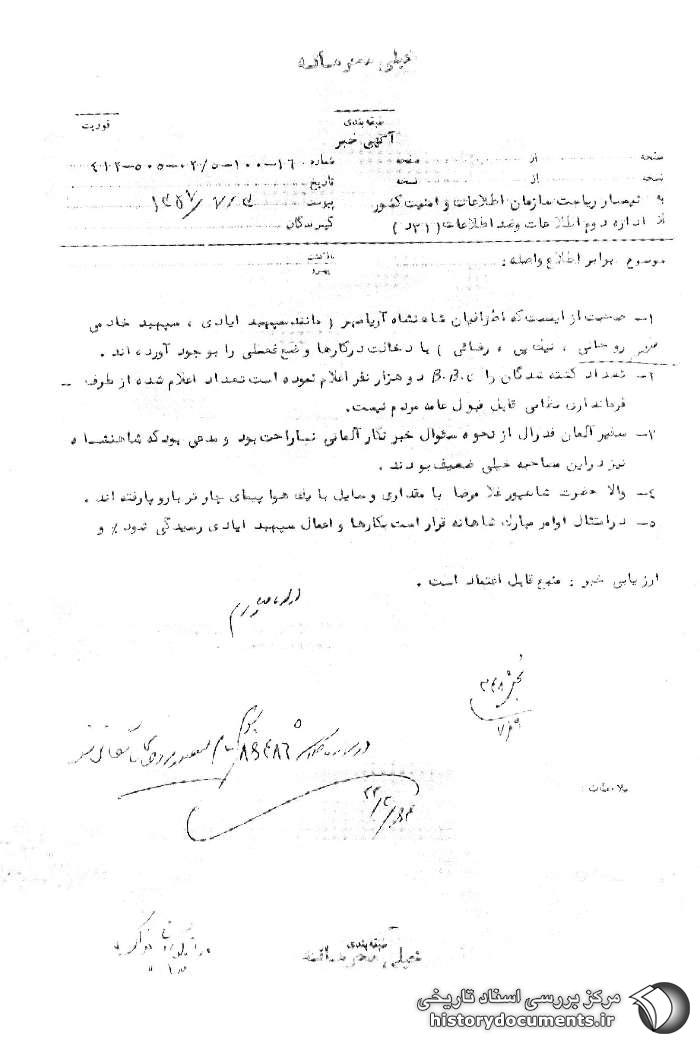 خیلی محرمانه
طبقه‌بندی
فوریت
آگهی خبر
صفحه از صفحه
شماره ۱۶-۱۰۰-۵/۰۲-۵۰۵-۴۱۲
نسخه از نسخه
تاریخ
به تیمسار ریاست سازمان اطلاعات و امنیت کشور
پیوست
۱۳۵۷/۷/۴
از اداره دوم اطلاعات و ضد اطلاعات (۳۱د)
گیرندگان
موضوع برابر اطلاع واصله :
بازگشت
پیرو
۱- صحبت از اینست که اطرافیان شاهنشاه آریامهر ( مانند سپهبد ایادی ، سپهبد خادمی
روحانی ، نیک پی ، رضائی ) با دخالت در کارها وضع فعلی را بوجود آورده اند .
۲- تعداد کشته شدگان را B.B.C دو هزار نفر اعلام نموده است تعداد اعلام شده از طرف
فرمانداری نظامی قابل قبول عامه مردم نیست.
۳- سفیر آلمان فدرال از نحوه سئوال خبرنگار آلمانی ناراحت بود و مدعی بود که شاهنشاه
نیز در این مصاحبه خیلی ضعیف بودند .
۴- والا حضرت شاهپور غلامرضا با مقداری وسایل با یک هواپیمای چارتر باروپا رفته اند .
۵- در امتثال اوامر مبارک شاهانه قرار است بکارها و اعمال سپهبد ایادی رسیدگی شود و
ارزیابی خبر : منبع قابل اعتماد است .
بخش ۳۴۸
۷/۹
ملاحظات
طبقه‌بندی
خیلی محرمانه
مرکز بررسی اسناد تاریخی
historydocuments.ir